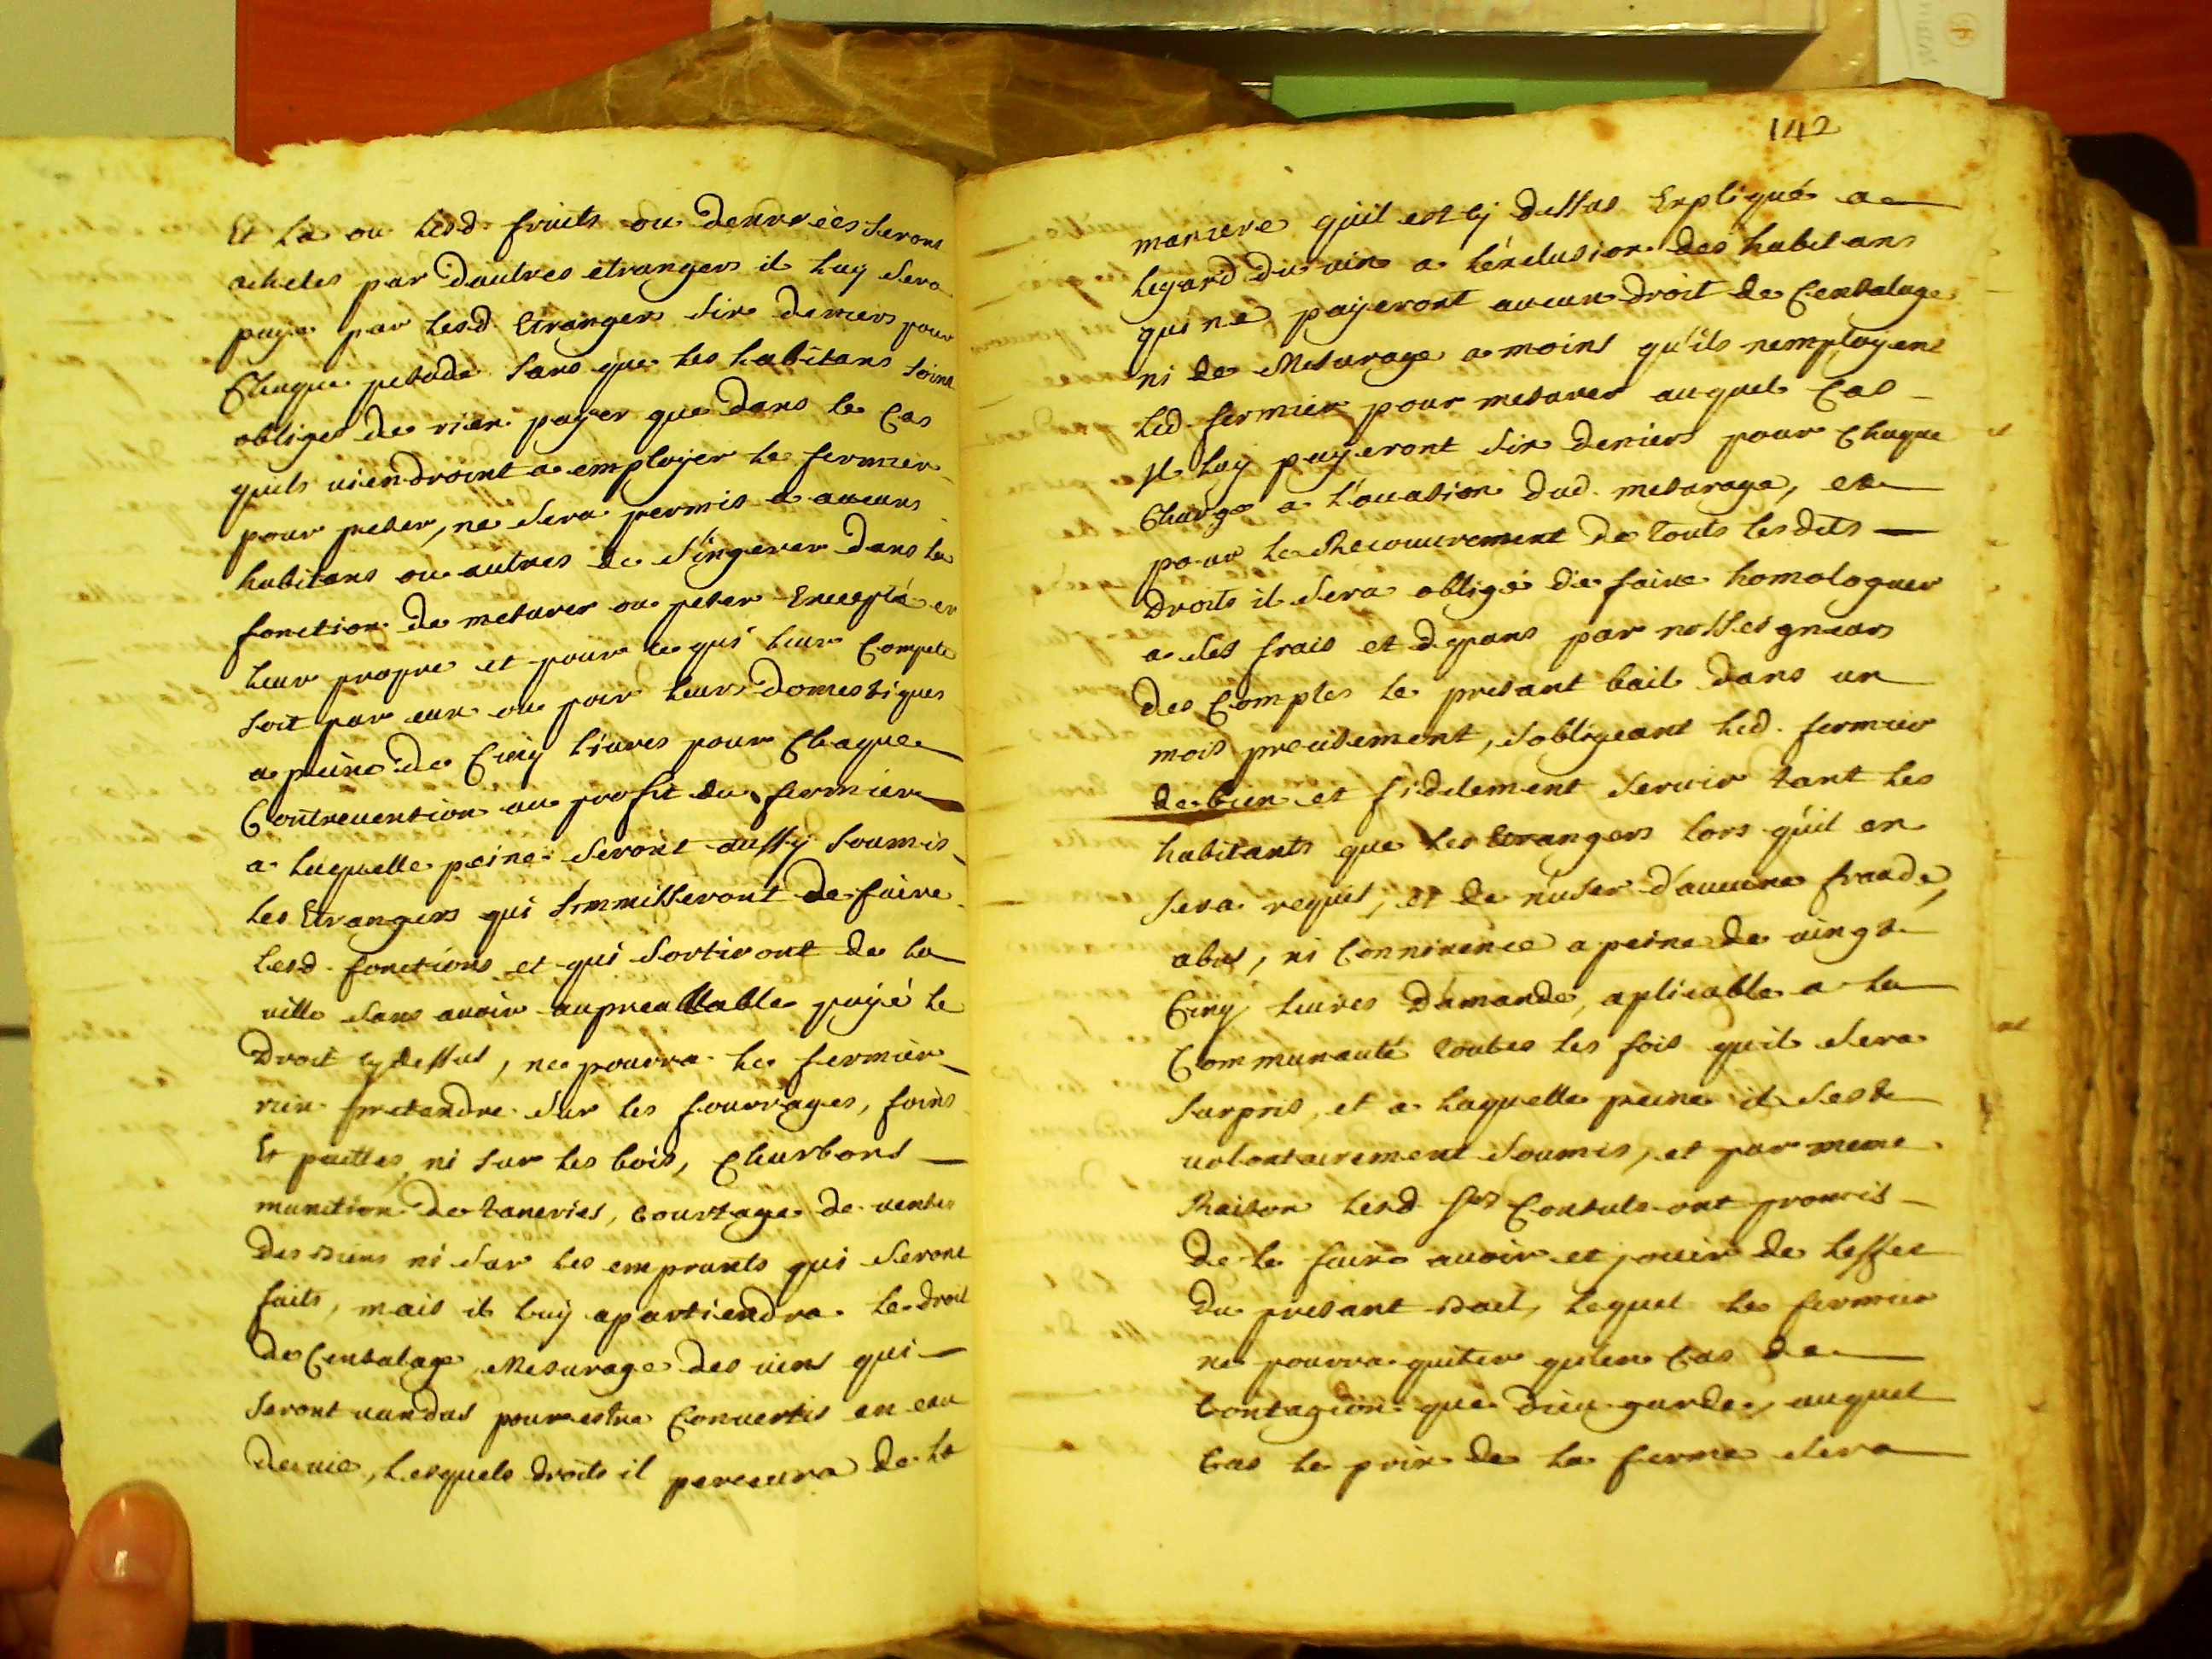 Et la ou lesd. fruits ou denrrées seront
achetés par d'autres etrangers il luy sera
payé par lesd. Etrangers six deniers pour
Chaque pesade sans que les habitans soint
obliges de rien payer que dans le Cas
quils viendroint a employer le fermier
pour peser, ne sera permis a aucuns
habitans ou autres de s'ingerer dans la
fonction de mesurer ou peser Excepté en
leur propre et pour ce qui leur Compete
soit par eux ou par leurs domestiques
a peine de Cinq livres pour Chaque
Contrevention au profit du fermier
a laquelle peine seront aussy soumis
les Etrangers qui simmisseront de faire
lesd. fonctions et qui sortiront de la
ville sans avoir aupreallable payé le
droit cy dessus, ne pourra le fermier
rien pretandre sur les fourrages, foins
Et pailles, ni sur les bois, Charbons
munition de taneries, courtage de ventes
des biens ni sur les emprunts qui seront
faits, mais il luy apartiendra le droit
de Censalage, Mesurage des vins qui
seront vandus pour estre Convertis en eau
de vie, lesquels droits il percevra de la
142
maniere quil est cy dessus Expliqué a
legard du vin a l'exclusion des habitans
qui ne payeront aucun droit de Censalage
ni de Mesurage a moins qu'ils nemployent
led. fermier pour mesurer auquel Cas
Il luy payeront six deniers pour Chaque
Charge a l'ocasion dud. mesurage, et
pour le Recouvrement de touts lesdits
droits il sera obligé de faire homologuer
a ses frais et depans par nosseigneurs
des Comptes le presant bail dans un
mois precisement, sobligeant led. fermier
de bien et fidelement servir tant les
habitants que les Etrangers lors quil en
sera requis, et de n'user d'aucune fraude,
abus, ni Connivence a peine de vingt
Cinq livres d'amande, aplicable a la
Communauté toutes les fois quil sera
surpris, et a laquelle peine il sest
volontairement soumis, et par meme
Raison lesd. srs Consuls ont promis
de le faire avoir et jouir de leffet
du presant bail, lequel le fermier
ne pourra quiter qu'en Cas de
Contagion que dieu garde, auquel
Cas le prix de la ferme sera